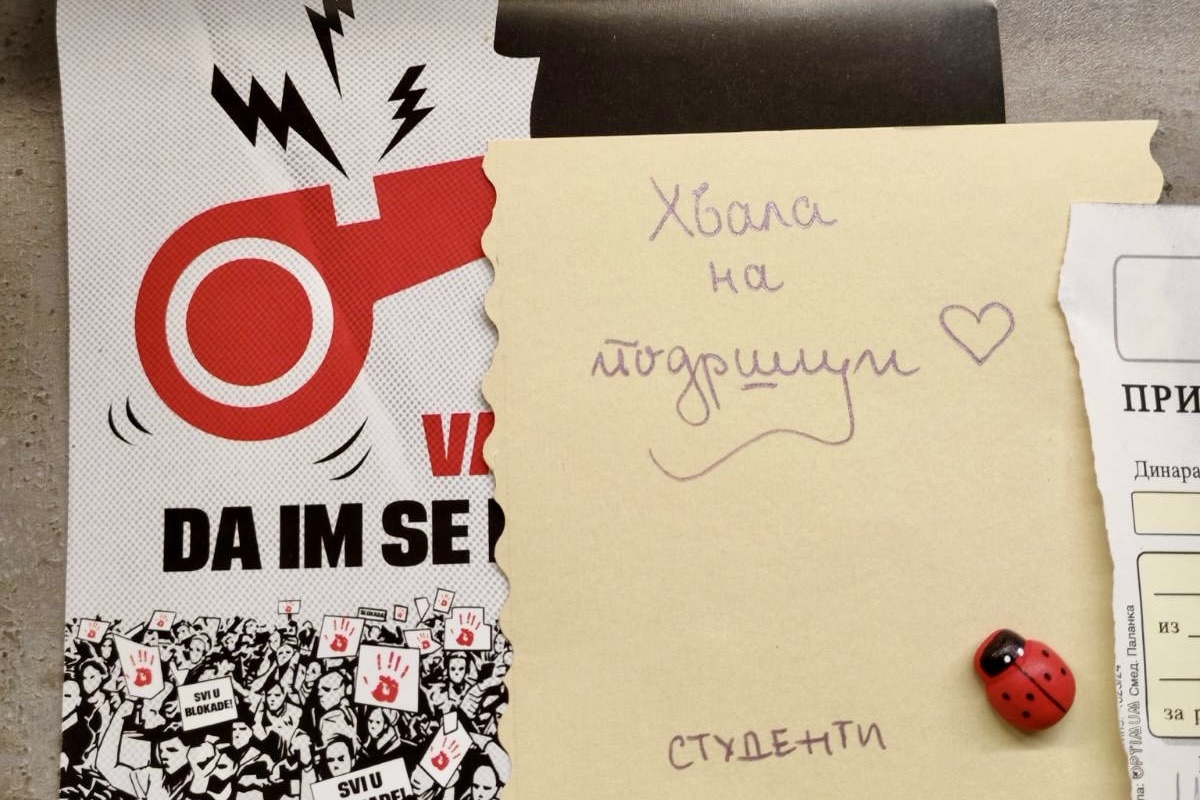 VA
DA IM SE
BLOKADA
SVI U
BLOKADE!
SVI U
Хвала
на
подршци
СТУДЕНТИ
ПРИ
Динара
из
за
OPTIMUM Смед. Паланка